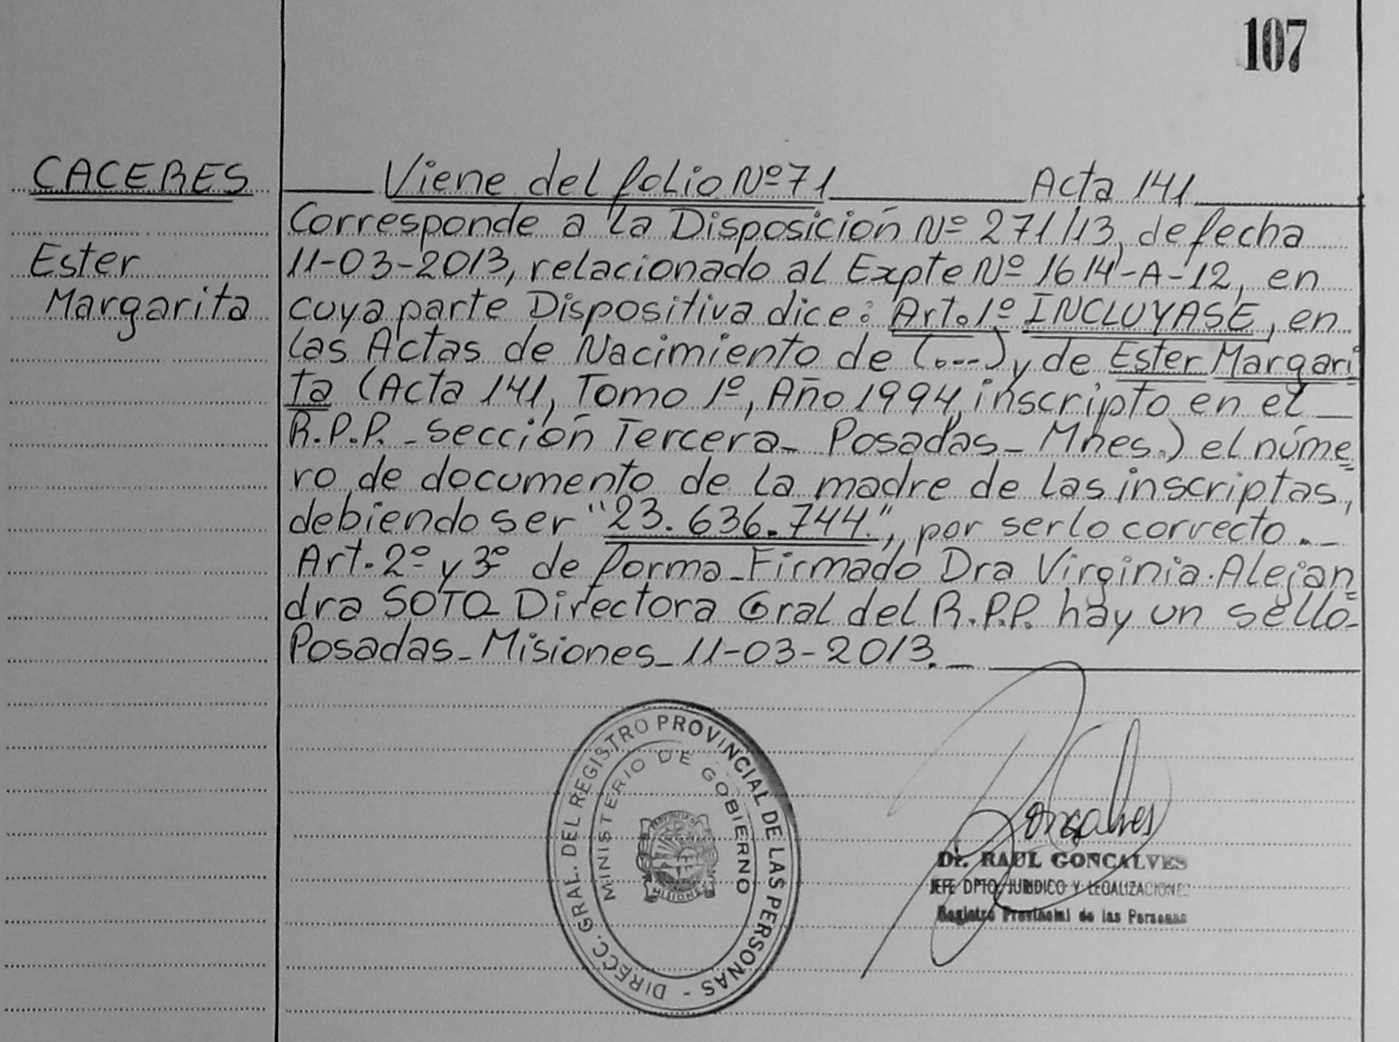 107
CACERES
Ester
Margarita
Viene del folio Nº 71 Acta 141
Corresponde a la Disposición Nº 271/13, de fecha
11-03-2013, relacionado al Expte Nº 1614-A-12, en
cuya parte Dispositiva dice: Art. 1º INCLUYASE, en
las Actas de Nacimiento de (...) y de Ester Margari
ta (Acta 141, Tomo 1º, Año 1994, inscripto en el
R.P.P. - Sección Tercera - Posadas - Mnes.) el núme=
ro de documento de la madre de las inscriptas,
debiendo ser "23.636.744", por ser lo correcto.-
Art. 2º y 3º de forma - Firmado Dra Virginia Alejan=
dra SOTO Directora Gral del R.P.P. hay un sello-
Posadas - Misiones - 11-03-2013.-
DIRECC. GRAL. DEL REGISTRO PROVINCIAL DE LAS PERSONAS -
MINISTERIO DE GOBIERNO
PROVINCIA DE
MISIONES
Goncalves
Dr. RAUL GONCALVES
JEFE DPTO. JURIDICO Y LEGALIZACIONES
Registro Provincial de las Personas